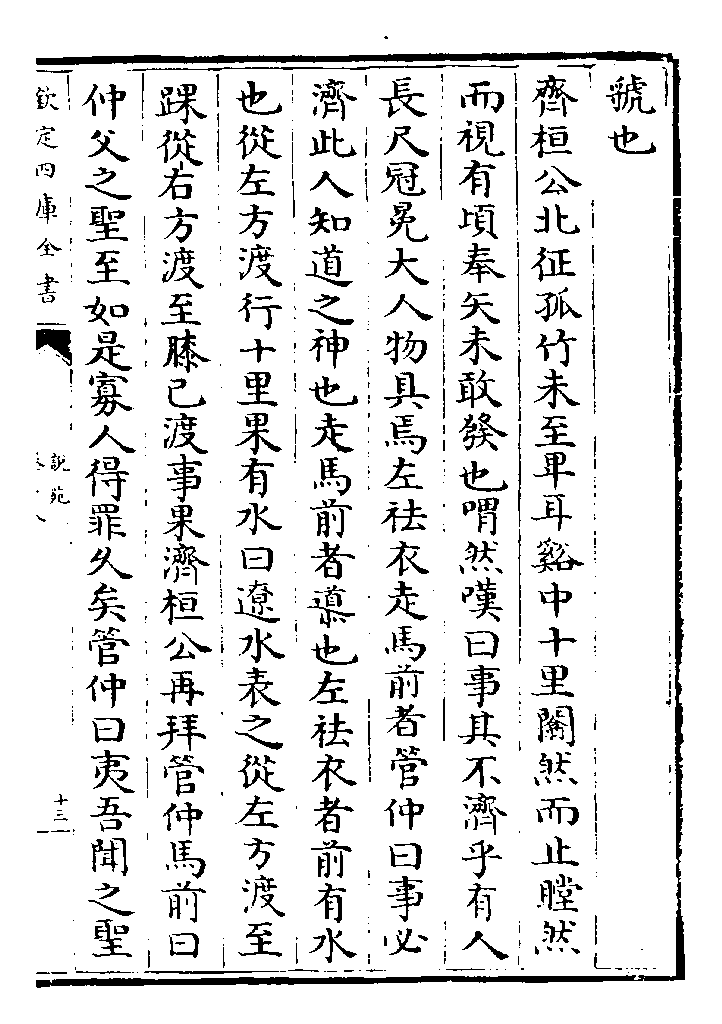 虢也
齊桓公北征孤竹未至卑耳谿中十里闟然而止瞠然
而視有頃奉矢未敢發也喟然嘆曰事其不濟乎有人
長尺冠冕大人物具焉左袪衣走馬前者管仲曰事必
濟此人知道之神也走馬前者導也左袪衣者前有水
也從左方渡行十里果有水曰遼水表之從左方渡至
踝從右方渡至膝已渡事果濟桓公再拜管仲馬前曰
仲父之聖至如是寡人得罪久矣管仲曰夷吾聞之聖
欽定四庫全書
說苑
十三